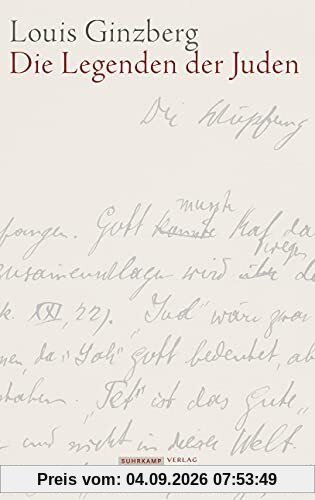 Louis Ginzberg
Die Legenden der Juden
Die Schöpfung
fangen. Gott konnte Kaf da
wegen
zusammenschlagen wird über d
k. XXI, 22). "Jud" wäre zwar
men, da "Jah" Gott bedeutet, ab
haben. "Tet" ist das Gute,
und nicht in dieser Welt.
SUHRKAMP VERLAG
Preis vom: 04.09.2026 07:53:49